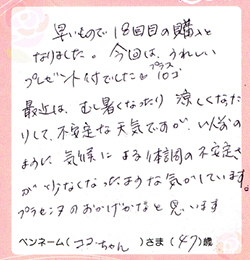 早いもので18回目の購入と
なりました。今回は、うれしい
プレゼント付でした😊プラス10コ
最近は、むし暑くなったり 涼しくなた
りして、不安定な天気ですが、以前の
ように、気候による体調の不安定さ
がなくなったような気がしています。
プラセンタのおかげかなと思います
ペンネーム(ココちゃん)さま(47)歳